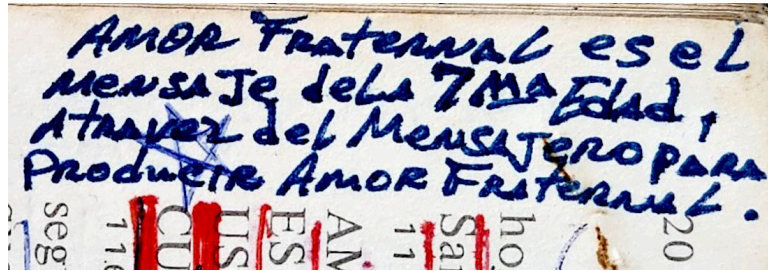 AMOR FRATERNAL es el
MENSAJE dela 7MA Edad,
Atravez del MENSAJERO PARA
Producir AMOR FRATERNAL.
20
ho
Sar
11
AM
ES
US
CU
11
seg